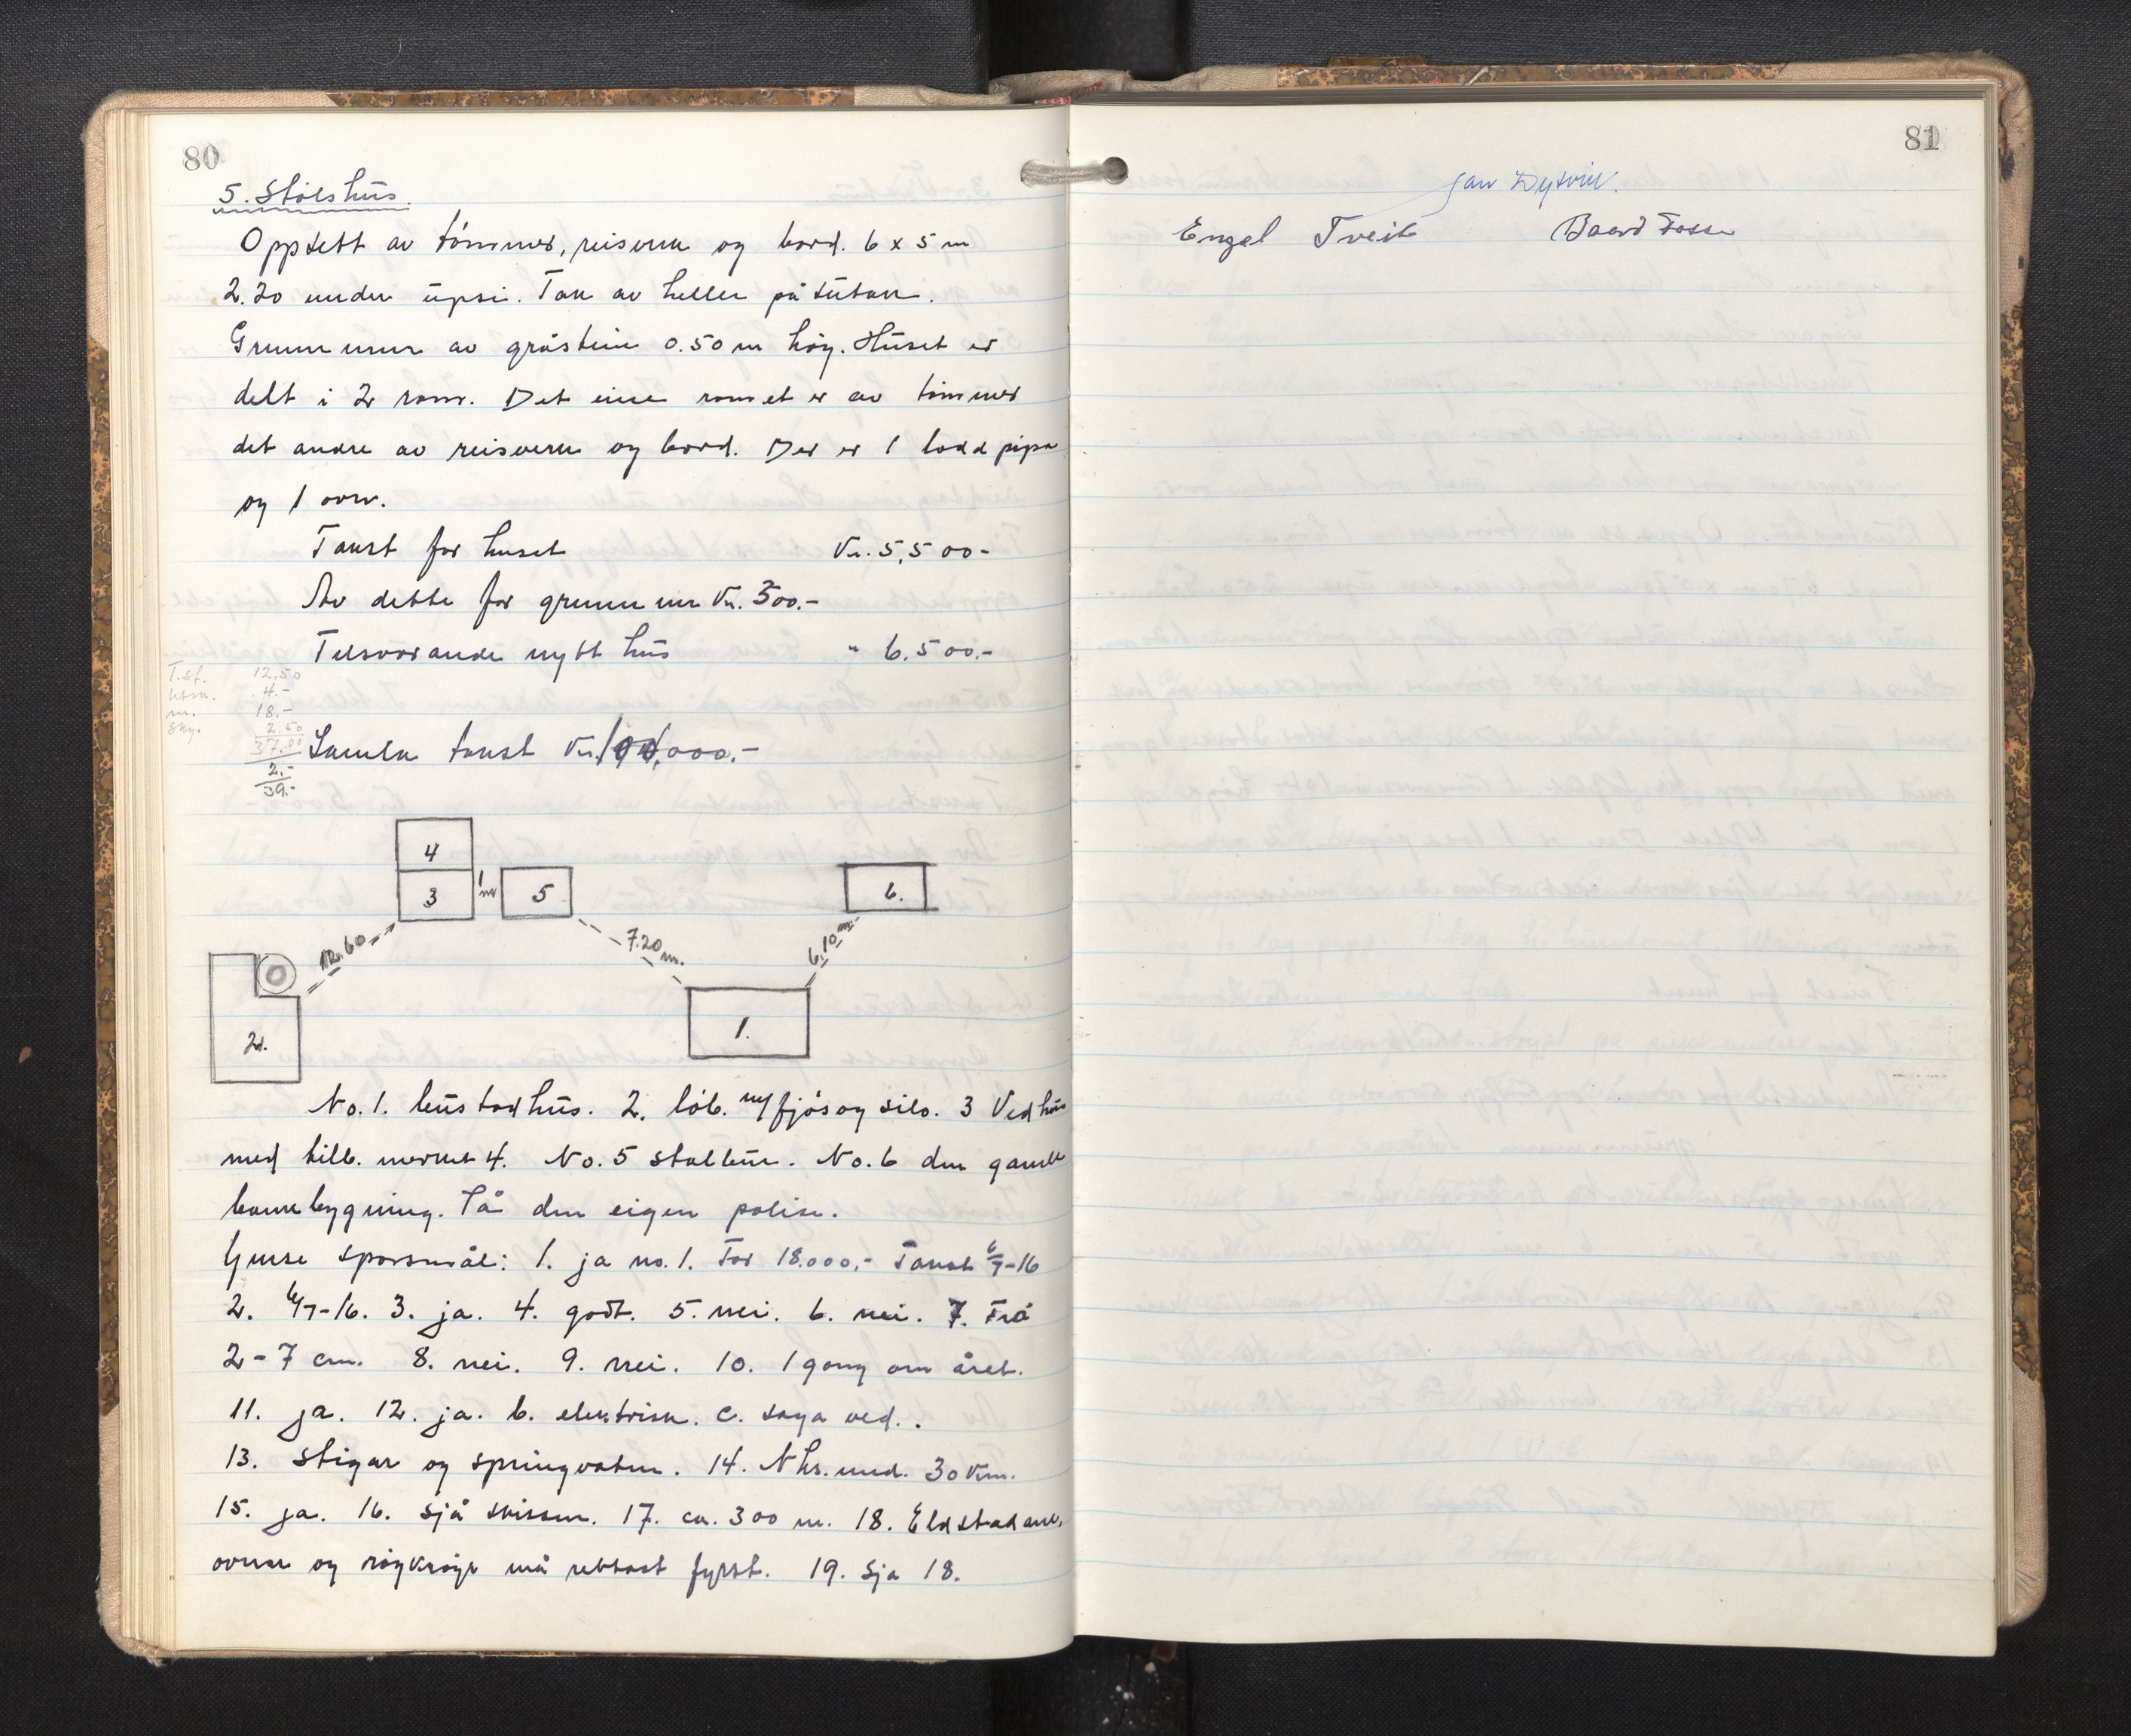 80
5. Stølshus.
Oppsett av tømmer, reisverk og bord. 6 x 5 m
2.20 under upsi. Tak av heller på sutak.
Grunnmur av gråstein 0.50 m høg. Huset er
delt i 2 rom. Det eine romet er av tømmer
det andre av reisverk og bord. Der er 1 lodd pipe
og 1 omn.
Takst for huset Kr. 5,500-
Av dette for grunnmur Kr. 500.-
Tilsvarande nytt hus " 6.500.-
T.st. 12,50
4.-
m. 18.-
Sky. 2.50
37.00
2.-
39.-
Samla takst Kr. ,000.-
4
3
1 m
5
6.
12.60
7.20 m.
6,10 m.
2.
1.
No. 1. bustadhus. 2. löb. m/fjös og silo. 3 Vedhus
med tilb. merket 4. No. 5 stabbur. No. 6 den gamle
bygning. På den eigen polise.
Ymse spørsmål: 1. ja no. 1. For 18.000,- Takst 6/7-16
2. 6/7-16. 3. ja. 4. godt. 5. nei. 6. nei. 7. Frå
2-7 cm. 8. nei. 9. nei. 10. 1 gong om året.
11. ja. 12. ja. b. elektrisk. c. saga ved.
13. Stigar og springvatn. 14. N hs. und. 30 km.
15. ja. 16. Sjå skissen. 17. ca. 300 m. 18. Eldstadane,
omnar og røykrøyr må rettast fyrst. 19. Sjå 18.
81
Jan Dysvik.
Engel Tveit Baard Fosse